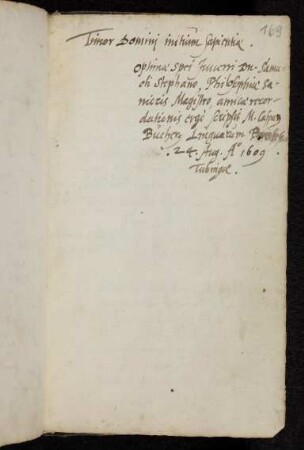 169
Timor Domini initium sapientiæ.
Optimæ spei Juveni Dn. Samu-
eli Stephano, Philosophiæ Sa-
nioris Magistro, amicæ recor-
dationis ergò scripsit M. Caspar
Bücher. Linguarum
24. Aug. Aº 1609
Tubingæ.